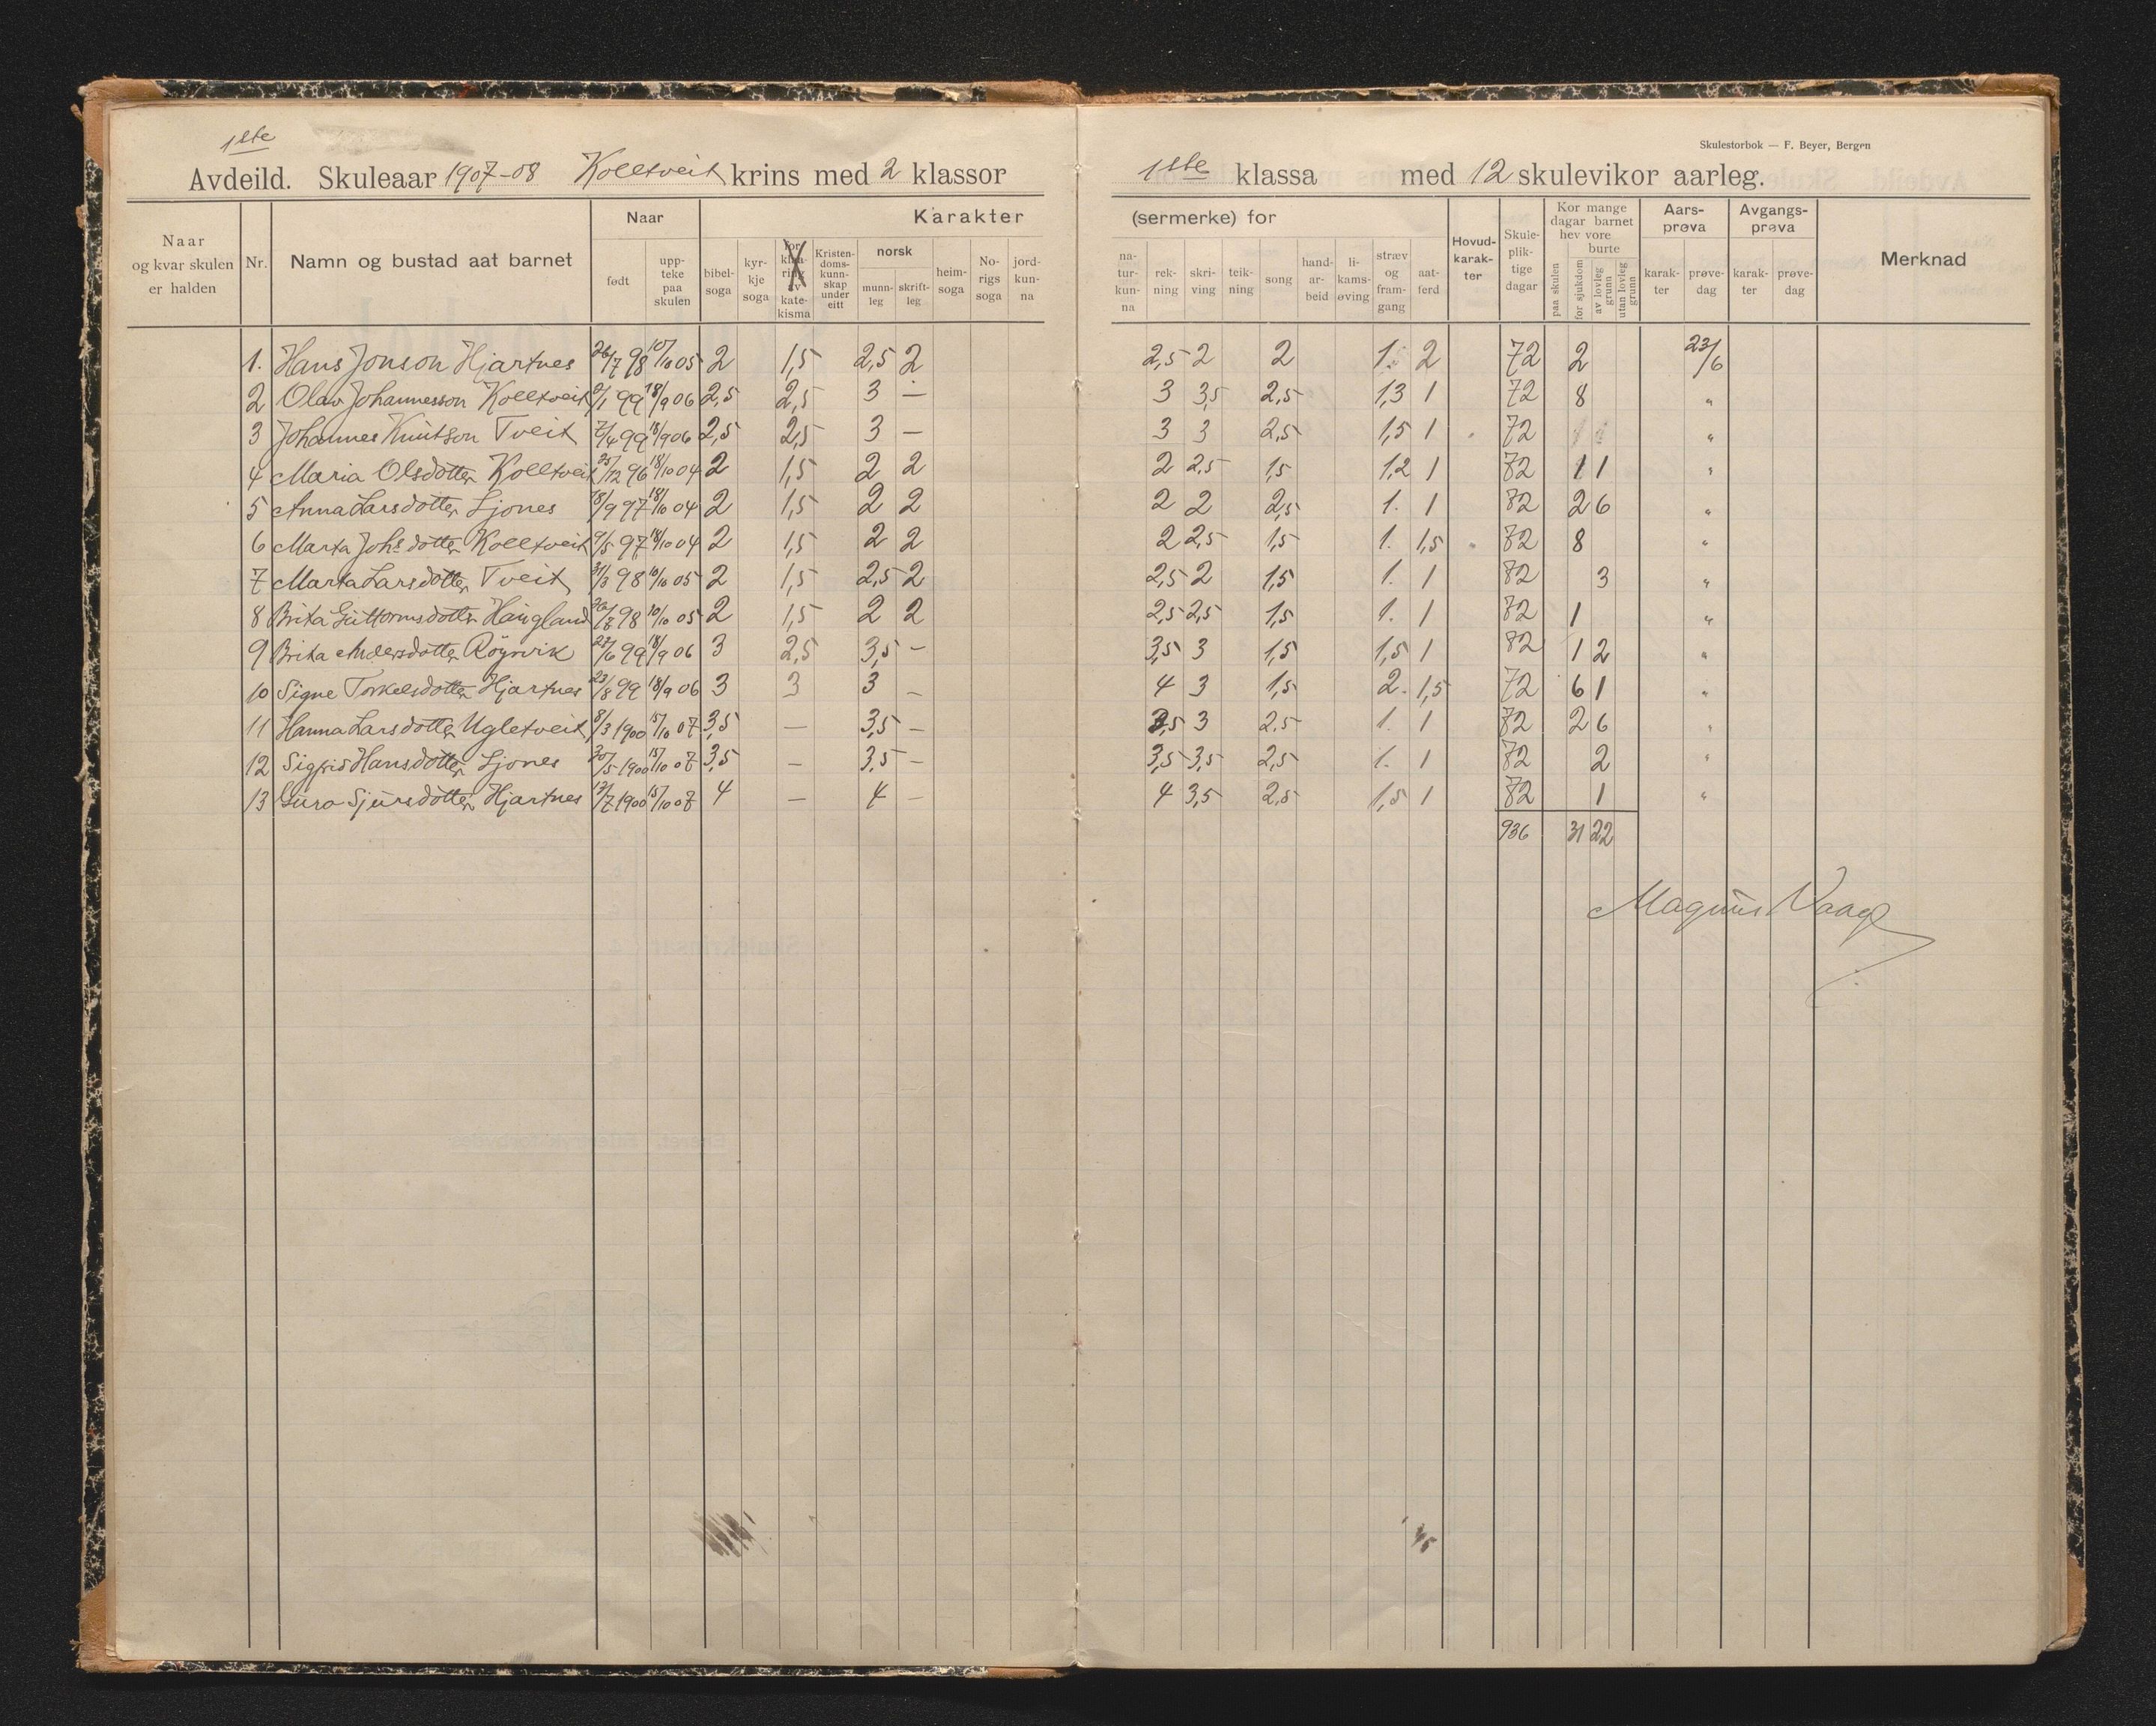 1ste
Skulestorbok — F. Beyer, Bergen
Avdeild. Skuleaar 1907-08 Kolltveit krins med 2 klassor 1ste klassa med 12 skulevikor aarleg.
Naar og kvar skulen er halden Nr. Namn og bustad aat barnet Naar født upp-teke paa skulen Karakter (sermerke) for bibel-soga kyr-kje soga for-kla-ring av kate-kisma Kristen-doms-kunn-skap under eitt norsk munn-leg skrift-leg heim-soga No-rigs soga jord-kun-na na-tur-kun-na rek-ning skri-ving teik-ning song hand-ar-beid li-kams-øving stræv og fram-gang aat-ferd Hovud-karak-ter Skule-plik-tige dagar Kor mange dagar barnet hev vore paa skulen burte for sjukdom av lovleg grunn utan lovleg grunn Aars-prøva karak-ter prøve-dag Avgangs-prøva karak-ter prøve-dag Merknad
1. Hans Jonson Hjartnes 26/7 98 10/10 05 2 1,5 2,5 2 2,5 2 2 1. 2 72 2 23/6
2 Olav Johannesson Kolltveit /1 99 18/9 06 2,5 2,5 3 — 3 3,5 2,5 1,3 1 72 8 "
3 Johannes Knutson Tveit 7/4 99 18/9 06 2,5 2,5 3 — 3 3 2,5 1,5 1 72 "
4 Maria Olsdotter Kolltveit 25/12 96 18/10 04 2 1,5 2 2 2 2,5 1,5 1,2 1 72 11 1 "
5 Anna Larsdotter Ljones 18/9 97 18/10 04 2 1,5 2 2 2 2 2,5 1. 1 72 2 6 "
6 Marta Johs dotter Kolltveit 9/5 97 18/10 04 2 1,5 2 2 2 2,5 1,5 1. 1,5 72 8 "
7 Marta Larsdotter Tveit 31/3 98 10/10 05 2 1,5 2,5 2 2,5 2 1,5 1. 1 72 3 "
8 Brita Guttormsdotter Haugland 98 10/10 05 2 1,5 2 2 2,5 2,5 1,5 1. 1 72 1 "
9 Brita Andersdotter Röynvik 27/6 99 18/9 06 3 2,5 3,5 - 3,5 3 1,5 1,5 1 72 1 2 "
10 Signe Torkelsdotter Hjartnes 23/8 99 18/9 06 3 3 3 - 4 3 1,5 2. 1,5 72 6 1 "
11 Hanna Larsdotter Ugletveit 8/3 1900 15/10 07 3,5 — 3,5 - 3,5 3 2,5 1. 1 72 2 6 "
12 Sigrid Hansdotter Ljones 30/5 1900 15/10 07 3,5 — 3,5 - 3,5 3,5 2,5 1. 1 72 2 "
13 Guro Sjursdotter Hjartnes 17/7 1900 15/10 07 4 — 4 - 4 3,5 2,5 1,5 1 72 1 "
936 31 22
Magnus Vaage